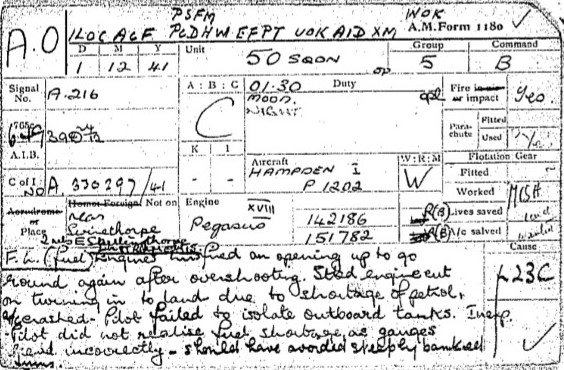 PSFM WOK
A.O ILOC AGF PLDHW EFPT UOK AID XM A.M. Form 1180
D M Y Unit Group Command
1 12 41 50 SQDN op 5 B
Signal No. A.216 A : B : C 01.30 Duty Fire or impact Yes
MOON. NIGHT C Para-chute Fitted
A.I.B. K I Used
- - Aircraft W:R:M Flotation Gear
C of I NO A 330297/41 HAMPDEN I W Fitted
P 1202 Worked
Aerodrome or Place Not on Engine XVIII
near Pegasus 142186 R(B) Lives saved
Swinethorpe 151782 R(B) A/c salved
Cause
F.L. (fuel) Engine misfired on opening up to go
round again after overshooting. Stbd engine cut L23C
on turning in to land due to shortage of petrol,
a/c crashed - Pilot failed to isolate outboard tanks. Inexp.
Pilot did not realise fuel shortage as gauges
incorrectly - should have avoided steeply banked
turns.